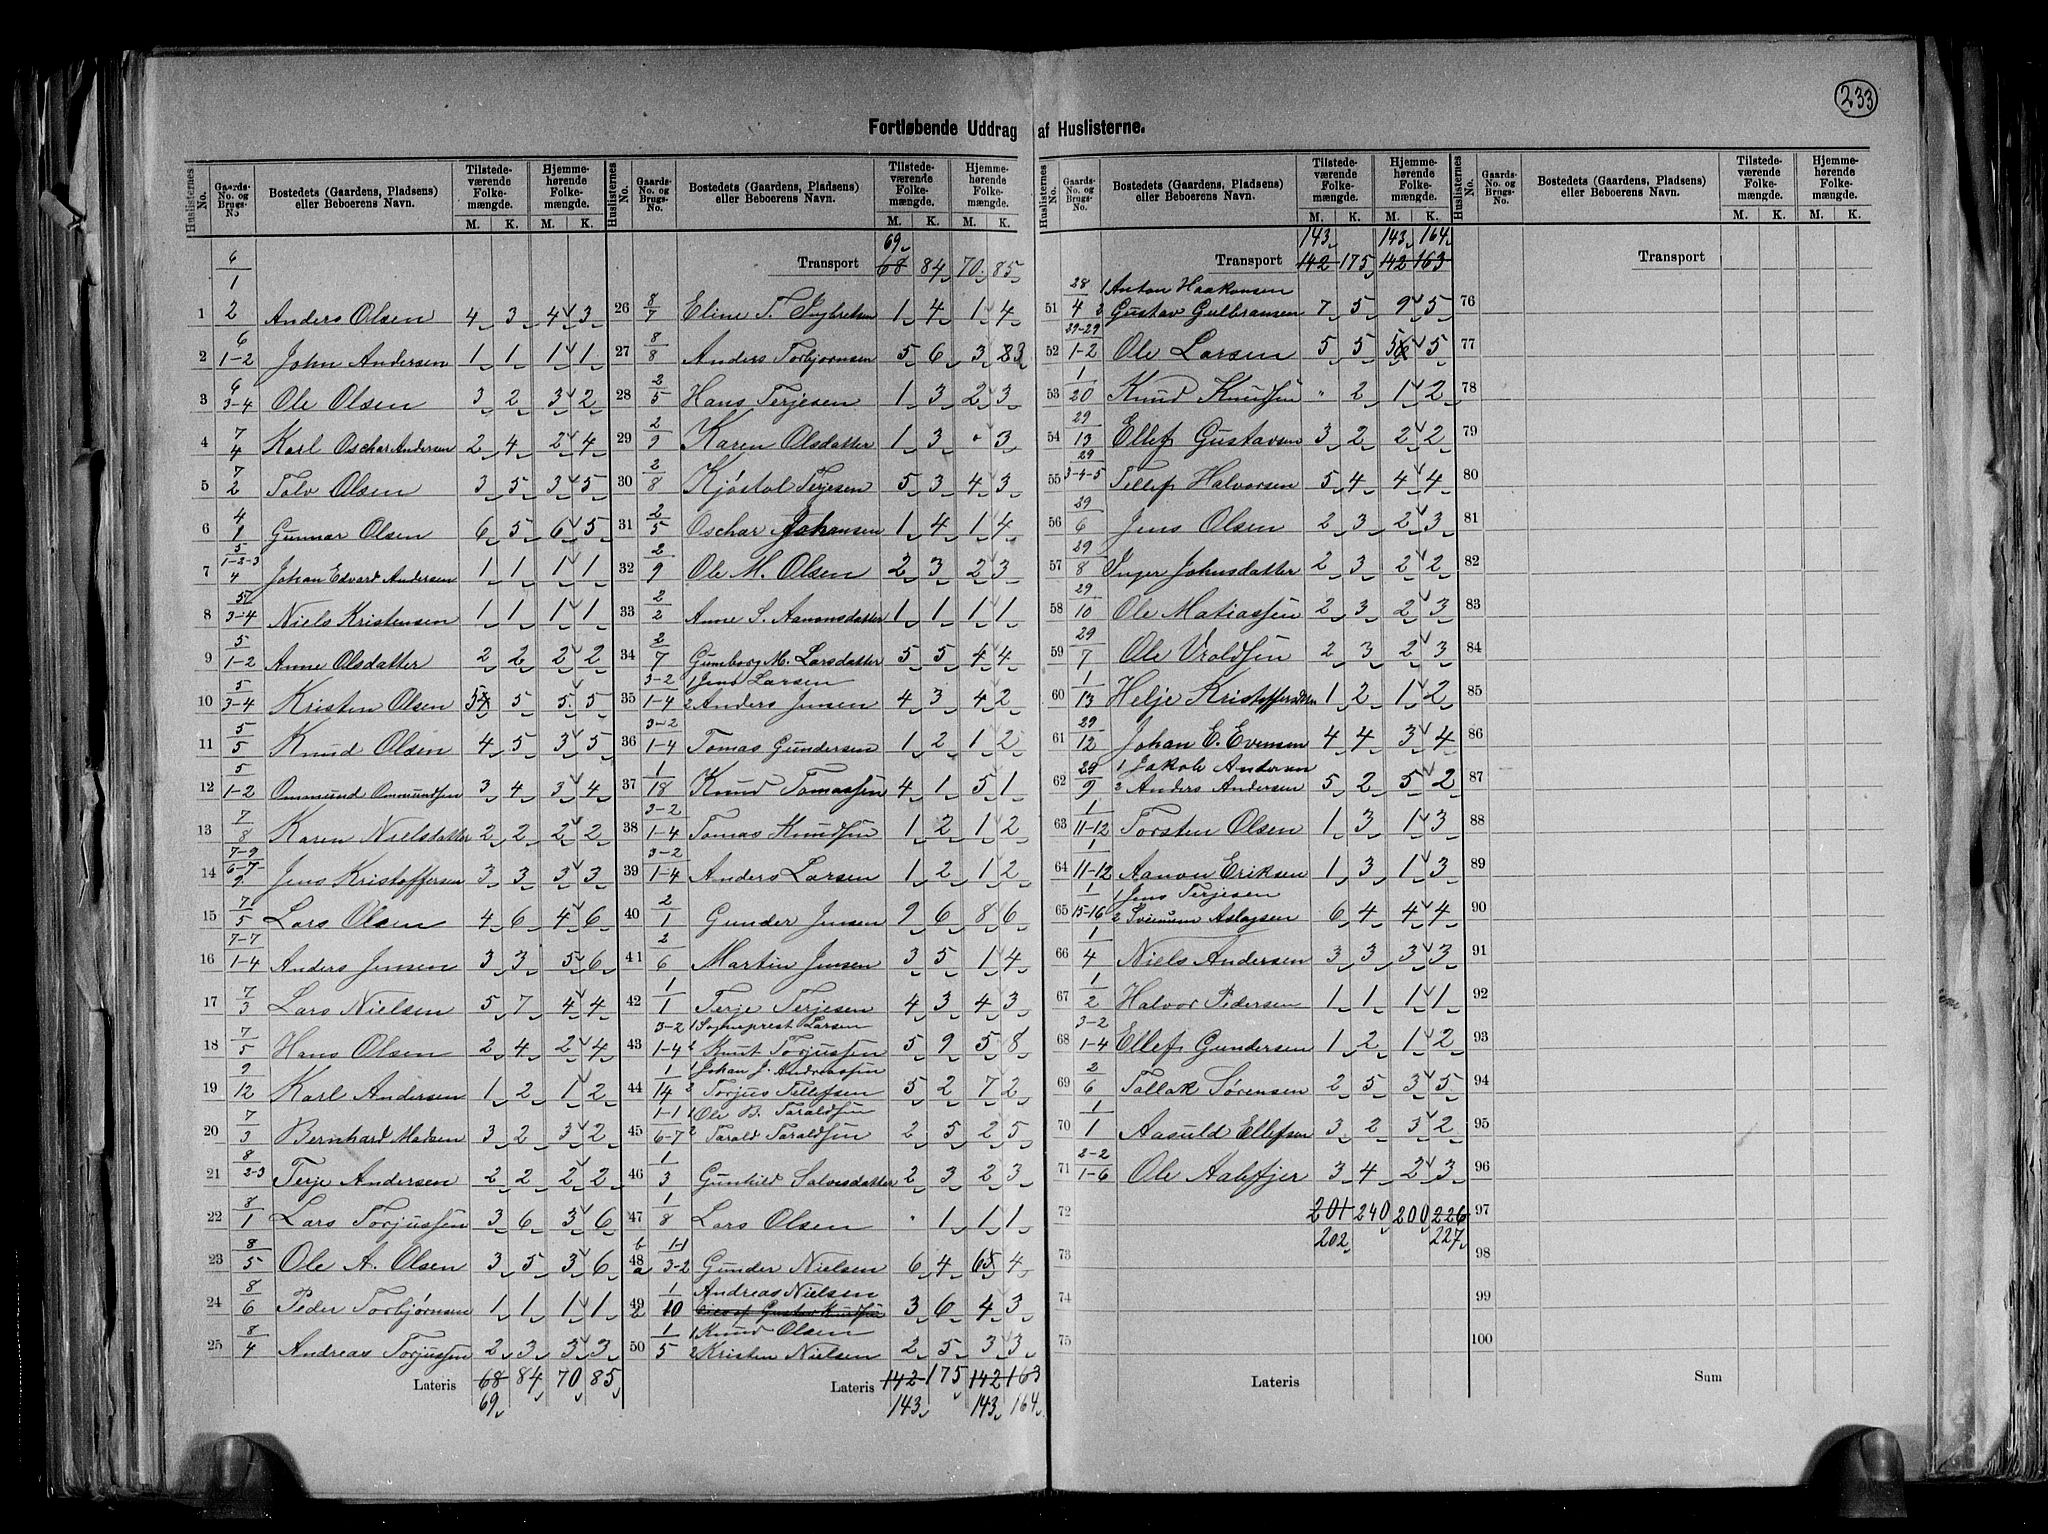 233
Fortløbende Uddrag af Huslisterne.
Huslisternes No. | Gaards-No. og Brugs-No | Bostedets (Gaardens, Pladsens) eller Beboerens Navn. | Tilstedeværende Folkemængde. M. K. | Hjemmehørende Folkemængde. M. K.
6/1
1 2 Anders Olsen 4 3 4 3
2 6/1-2 John Andersen 1 1 1 1
3 6/3-4 Ole Olsen 3 2 3 2
4 7/4 Karl Oschar Andersen 2 4 2 4
5 7/2 Tolv Olsen 3 5 3 5
6 4/1 Gunnar Olsen 6 5 6 5
7 5/1-2-3 4 Johan Edvard Andersen 1 1 1 1
8 5/3-4 Niels Kristensen 1 1 1 1
9 5/1-2 Anne Olsdatter 2 2 2 2
10 5/3-4 Kristen Olsen 5 5 5 5
11 5/5 Knud Olsen 4 5 3 5
12 5/1-2 Ommund Ommundsen 3 4 3 4
13 7/8 Karen Nielsdatter 2 2 2 2
14 7-9/6-7-9 Jens Kristoffersen 3 3 3 3
15 7/5 Lars Olsen 4 6 4 6
16 7-7/1-4 Anders Jensen 3 3 5 6
17 7/3 Lars Nielsen 5 7 4 4
18 7/5 Hans Olsen 2 4 2 4
19 9/12 Karl Andersen 1 2 1 2
20 7/3 Bernhard Madsen 3 2 3 2
21 8/2-3 Terje Andersen 2 2 2 2
22 8/1 Lars Torjussen 3 6 3 6
23 8/5 Ole A. Olsen 3 5 3 6
24 8/6 Peder Torbjørnsen 1 1 1 1
25 8/4 Andreas Torjussen 2 3 3 3
Lateris 68 84 70 85
69
Huslisternes No. | Gaards-No. og Brugs-No. | Bostedets (Gaardens, Pladsens) eller Beboerens Navn. | Tilstedeværende Folkemængde. M. K. | Hjemmehørende Folkemængde. M. K.
69
Transport 68 84 70 85
26 8/7 Eline T. Ingbretsen 1 4 1 4
27 8/8 Anders Torbjornsen 5 6 3 3
28 2/5 Hans Terjesen 1 3 2 3
29 2/9 Karen Olsdatter 1 3 " 3
30 2/8 Kjøstol Terjesen 5 3 4 3
31 2/5 Oschar Johansen 1 4 1 4
32 2/9 Ole M. Olsen 2 3 2 3
33 2/2 Anne S. Aanonsdatter 1 1 1 1
34 2/7 Gumborg M. Larsdatter 5 5 4 4
3-2 1 Jens Larsen
35 1-4 2 Anders Jensen 4 3 4 2
36 3-2/1-4 Tomas Gundersen 1 2 1 2
37 1/18 Knud Tomassen 4 1 5 1
38 3-2/1-4 Tomas Knudsen 1 2 1 2
39 3-2/1-4 Anders Larsen 1 2 1 2
40 2/1 Gunder Jensen 9 6 8 6
41 2/6 Martin Jensen 3 5 1 4
42 1/1 Terje Terjesen 4 3 4 3
3-2 1 Sogneprest Larsen
43 1-4 2 Knut Torjussen 5 9 5 8
1 Johan J. Andreassen
44 1/14 2 Torjus Tellefsen 5 2 7 2
1-1 1 Ole B. Taraldsen
45 6-7 2 Tarald Taraldsen 2 5 2 5
46 1/3 Gunhild Salvesdatter 2 3 2 3
47 1/8 Lars Olsen " 1 1 1
48 b a 1-1/3-2 Gunder Nielsen 6 4 6 4
1 Andreas Nielsen
49 10 Gustav Knudsen 3 6 4 3
1 1 Knud Olsen
50 5 2 Kristen Nielsen 2 5 3 3
Lateris 142 175 142 163
143 143 164
Huslisternes No. | Gaards-No. og Brugs-No. | Bostedets (Gaardens, Pladsens) eller Beboerens Navn. | Tilstedeværende Folkemængde. M. K. | Hjemmehørende Folkemængde. M. K.
143 143 164
Transport 142 175 142 163
28 1 Anton Haakonsen
51 4 2 Gustav Gulbransen 7 5 9 5
52 29-29/1-2 Ole Larsen 5 5 5 5
53 1/20 Knud Knudsen " 2 1 2
54 29/13 Ellef Gustavsen 3 2 2 2
55 29/3-4-5 Tellef Halvorsen 5 4 4 4
56 29/6 Jens Olsen 2 3 2 3
57 29/8 Inger Johnsdatter 2 3 2 2
58 29/10 Ole Matiassen 2 3 2 3
59 29/7 Ole Vroldsen 2 3 2 3
60 1/13 Helje Kristoffersdtten 1 2 1 2
61 29/12 Johan E. Evensen 4 4 3 4
29 1 Jakob Andersen
62 9 2 Anders Andersen 5 2 5 2
63 1/11-12 Torsten Olsen 1 3 1 3
64 1/11-12 Aanon Eriksen 1 3 1 3
1 1 Jens Terjesen
65 15-16 2 Aslagsen 6 4 4 4
66 1/4 Niels Andersen 3 3 3 3
67 1/2 Halvor Pedersen 1 1 1 1
68 3-2/1-4 Ellef Gundersen 1 2 1 2
69 2/6 Tallak Sørensen 2 5 3 5
70 1/1 Aasuld Ellefsen 3 2 3 2
71 2-2/1-6 Ole Aabefjer 3 4 2 3
72 201 240 200 226
202 227
73
74
75
Lateris
Huslisternes No. | Gaards-No. og Brugs-No. | Bostedets (Gaardens, Pladsens) eller Beboerens Navn. | Tilstedeværende Folkemængde. M. K. | Hjemmehørende Folkemængde. M. K.
Transport
76
77
78
79
80
81
82
83
84
85
86
87
88
89
90
91
92
93
94
95
96
97
98
99
100
Sum